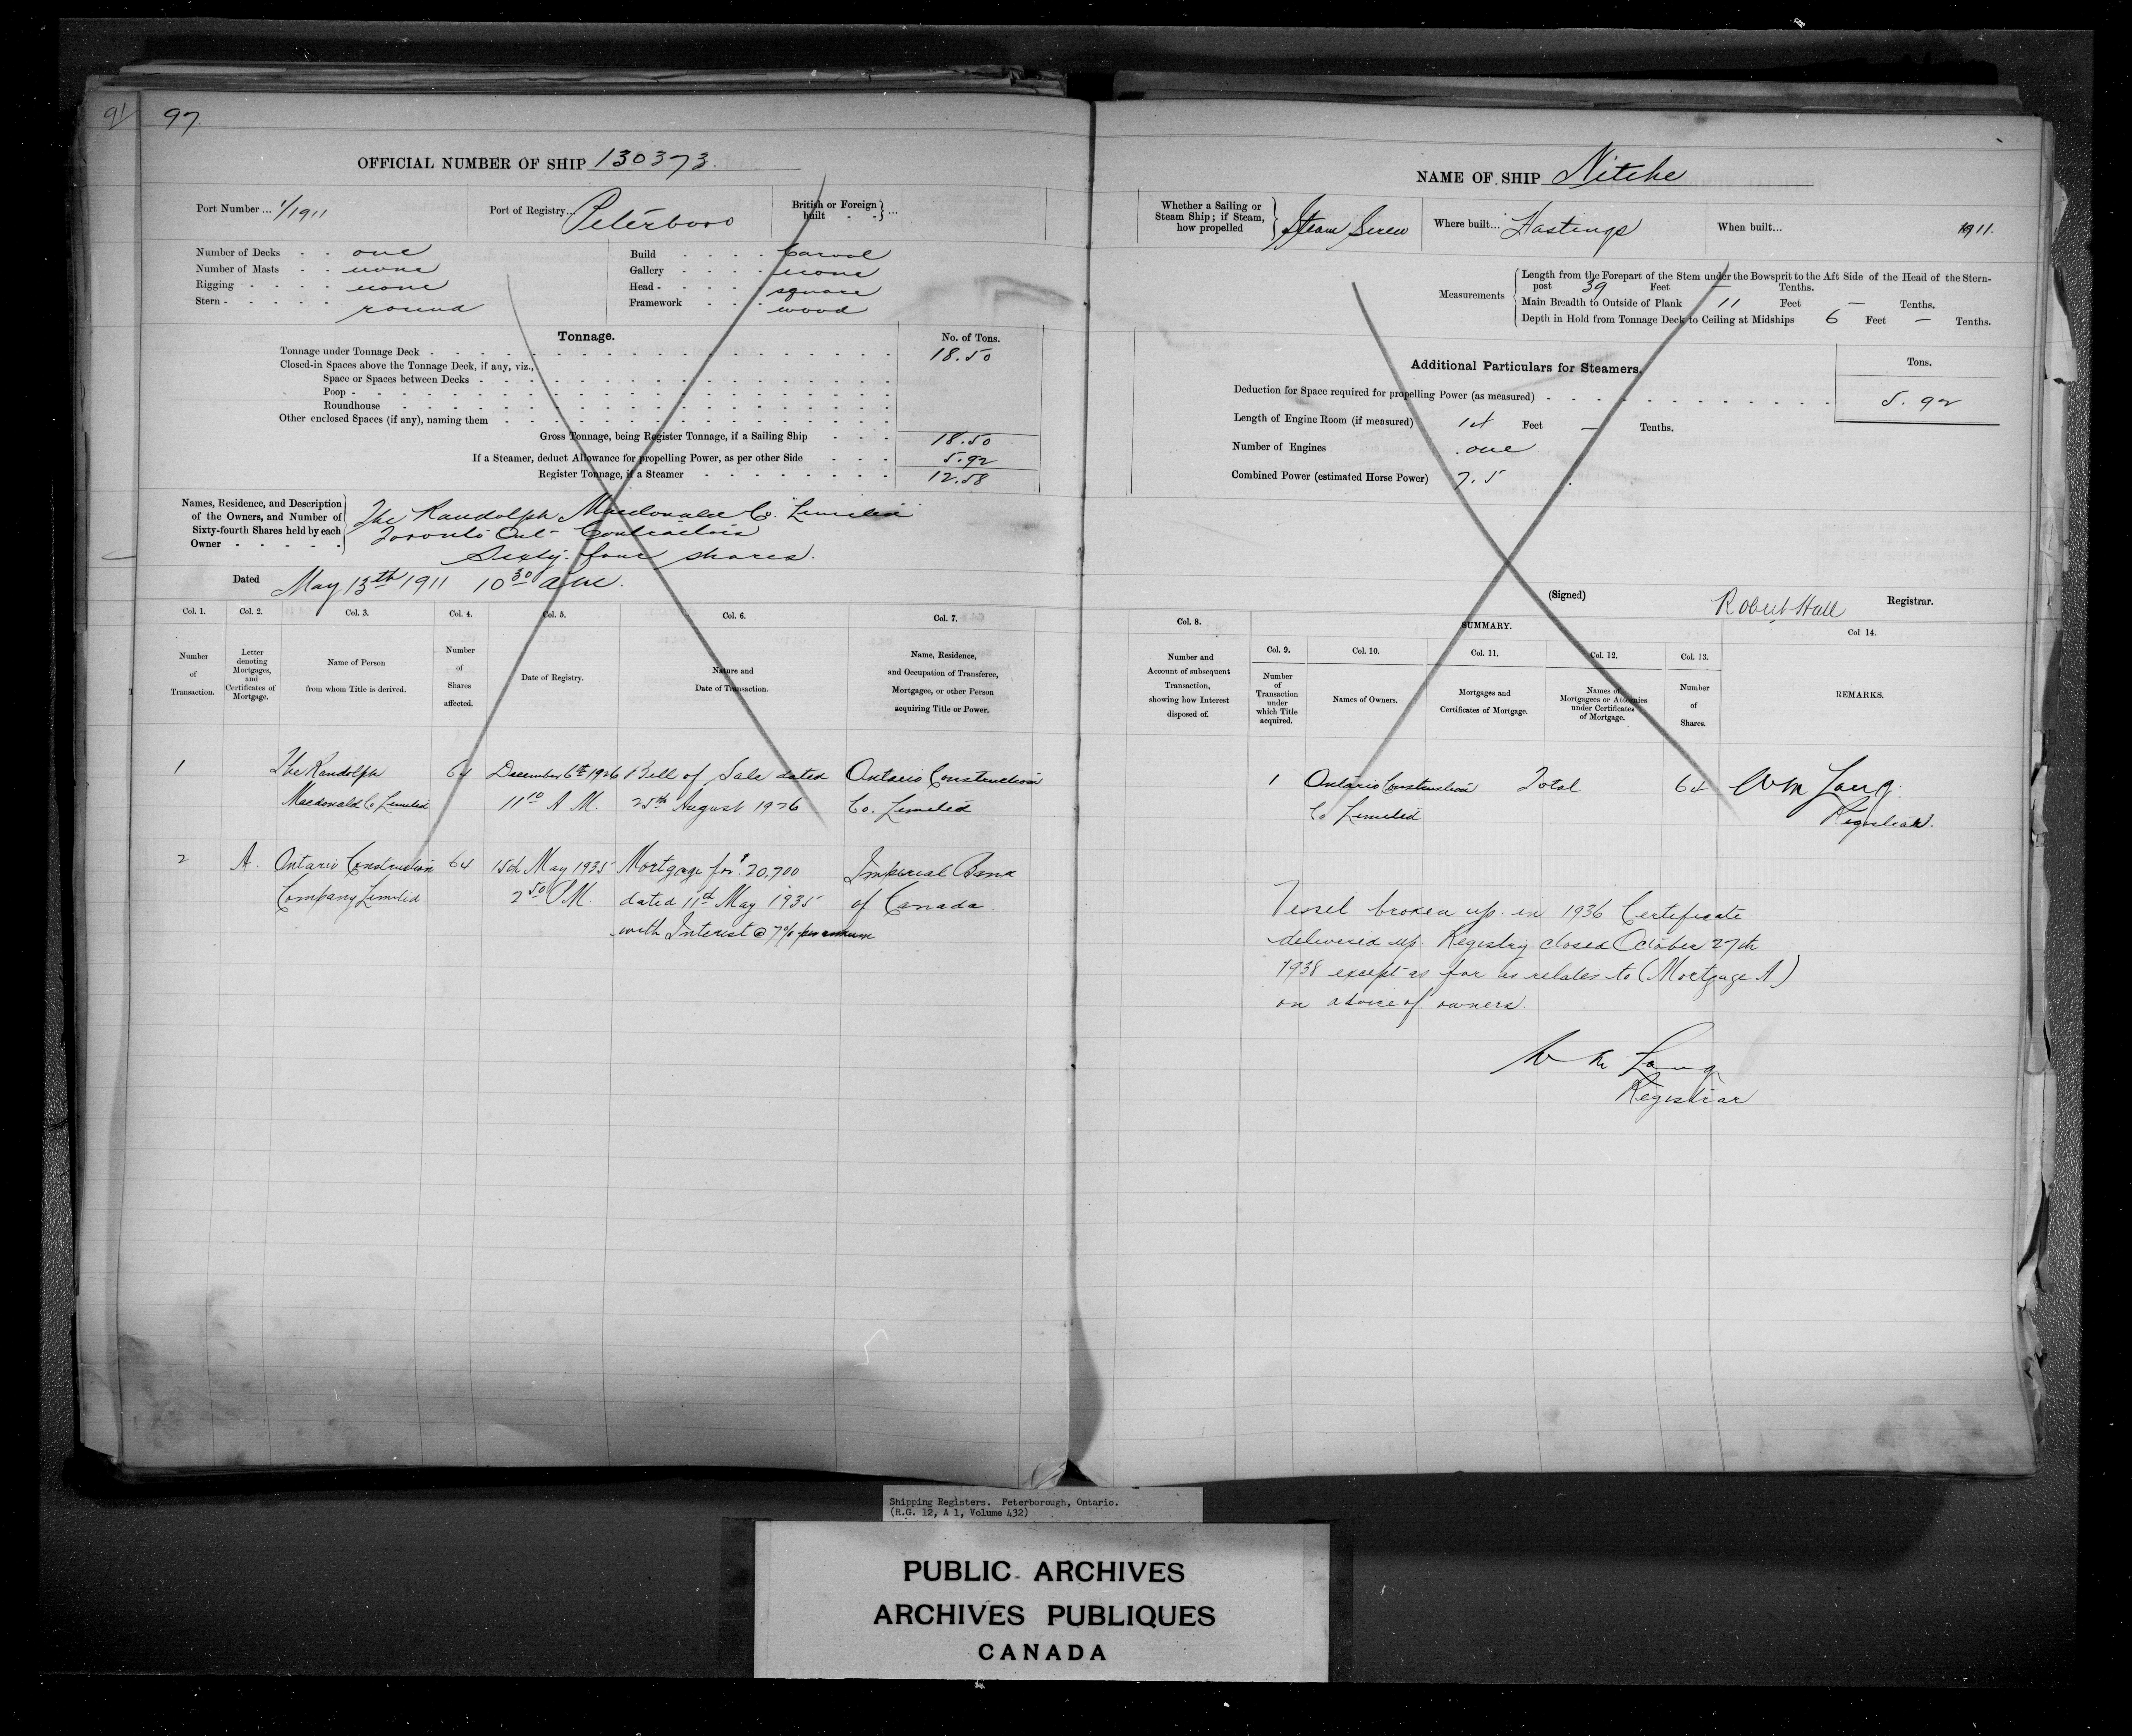 91
97.
OFFICIAL NUMBER OF SHIP 130373.
Port Number ... 1/1911
Port of Registry... Peterboro
British or Foreign built - - } ...
Number of Decks - - one
Number of Masts - - none
Rigging - - - - none
Stern - - - - - round
Build - - - - Carvel
Gallery - - - - none
Head - - - - square
Framework - - - wood
Tonnage.
No. of Tons.
Tonnage under Tonnage Deck - 18.50
Closed-in Spaces above the Tonnage Deck, if any, viz.,
Space or Spaces between Decks -
Poop -
Roundhouse
Other enclosed Spaces (if any), naming them
Gross Tonnage, being Register Tonnage, if a Sailing Ship - - - 18.50
If a Steamer, deduct Allowance for propelling Power, as per other Side - - - 5.92
Register Tonnage, if a Steamer - 12.58
Names, Residence, and Description of the Owners, and Number of Sixty-fourth Shares held by each Owner - - - - -
The Randolph Macdonald Co. Limited
Toronto Ont- Contractors
Sixty-four shares.
Dated May 13th 1911 10 30 a.m.
Col. 1. Col. 2. Col. 3. Col. 4. Col. 5. Col. 6. Col. 7.
Number of Transaction.
Letter denoting Mortgages, and Certificates of Mortgage.
Name of Person from whom Title is derived.
Number of Shares affected.
Date of Registry.
Nature and Date of Transaction.
Name, Residence, and Occupation of Transferee, Mortgagee, or other Person acquiring Title or Power.
1 The Randolph 64 December 6th 1926 Bill of Sale dated Ontario Construction
Macdonald Co Limited 11 10 A.M. 25th August 1926 Co. Limited
2 A. Ontario Construction 64 15th May 1935 Mortgage for $20,700 Imperial Bank
Company Limited 2 50 P.M. dated 11th May 1935 of Canada.
with Interest @ 7% per annum
NAME OF SHIP Nitche
Whether a Sailing or Steam Ship; if Steam, how propelled } Steam Screw
Where built... Hastings
When built... 1911.
Measurements
Length from the Forepart of the Stem under the Bowsprit to the Aft Side of the Head of the Stern-
post 39 Feet — Tenths.
Main Breadth to Outside of Plank 11 Feet — Tenths.
Depth in Hold from Tonnage Deck to Ceiling at Midships 6 Feet — Tenths.
Additional Particulars for Steamers.
Tons.
Deduction for Space required for propelling Power (as measured) - 5.92
Length of Engine Room (if measured) Feet — Tenths.
Number of Engines one
Combined Power (estimated Horse Power) 7.5
(Signed) Robert Hall Registrar.
Col. 8.
SUMMARY.
Col. 9. Col. 10. Col. 11. Col. 12. Col. 13. Col 14.
Number and Account of subsequent Transaction, showing how Interest disposed of.
Number of Transaction under which Title acquired.
Names of Owners.
Mortgages and Certificates of Mortgage.
Names of Mortgagees or Attornies under Certificates of Mortgage.
Number of Shares.
REMARKS.
1 Ontario Construction Total 64 Wm Lang.
Co Limited Registrar.
Vessel broken up in 1936 Certificate
delivered up. Registry closed October 27th
1938 except as far as relates to (Mortgage A)
on advice of owners.
Wm Lang
Registrar
Shipping Registers. Peterborough, Ontario.
(R.G. 12, A 1, Volume 432)
PUBLIC ARCHIVES
ARCHIVES PUBLIQUES
CANADA